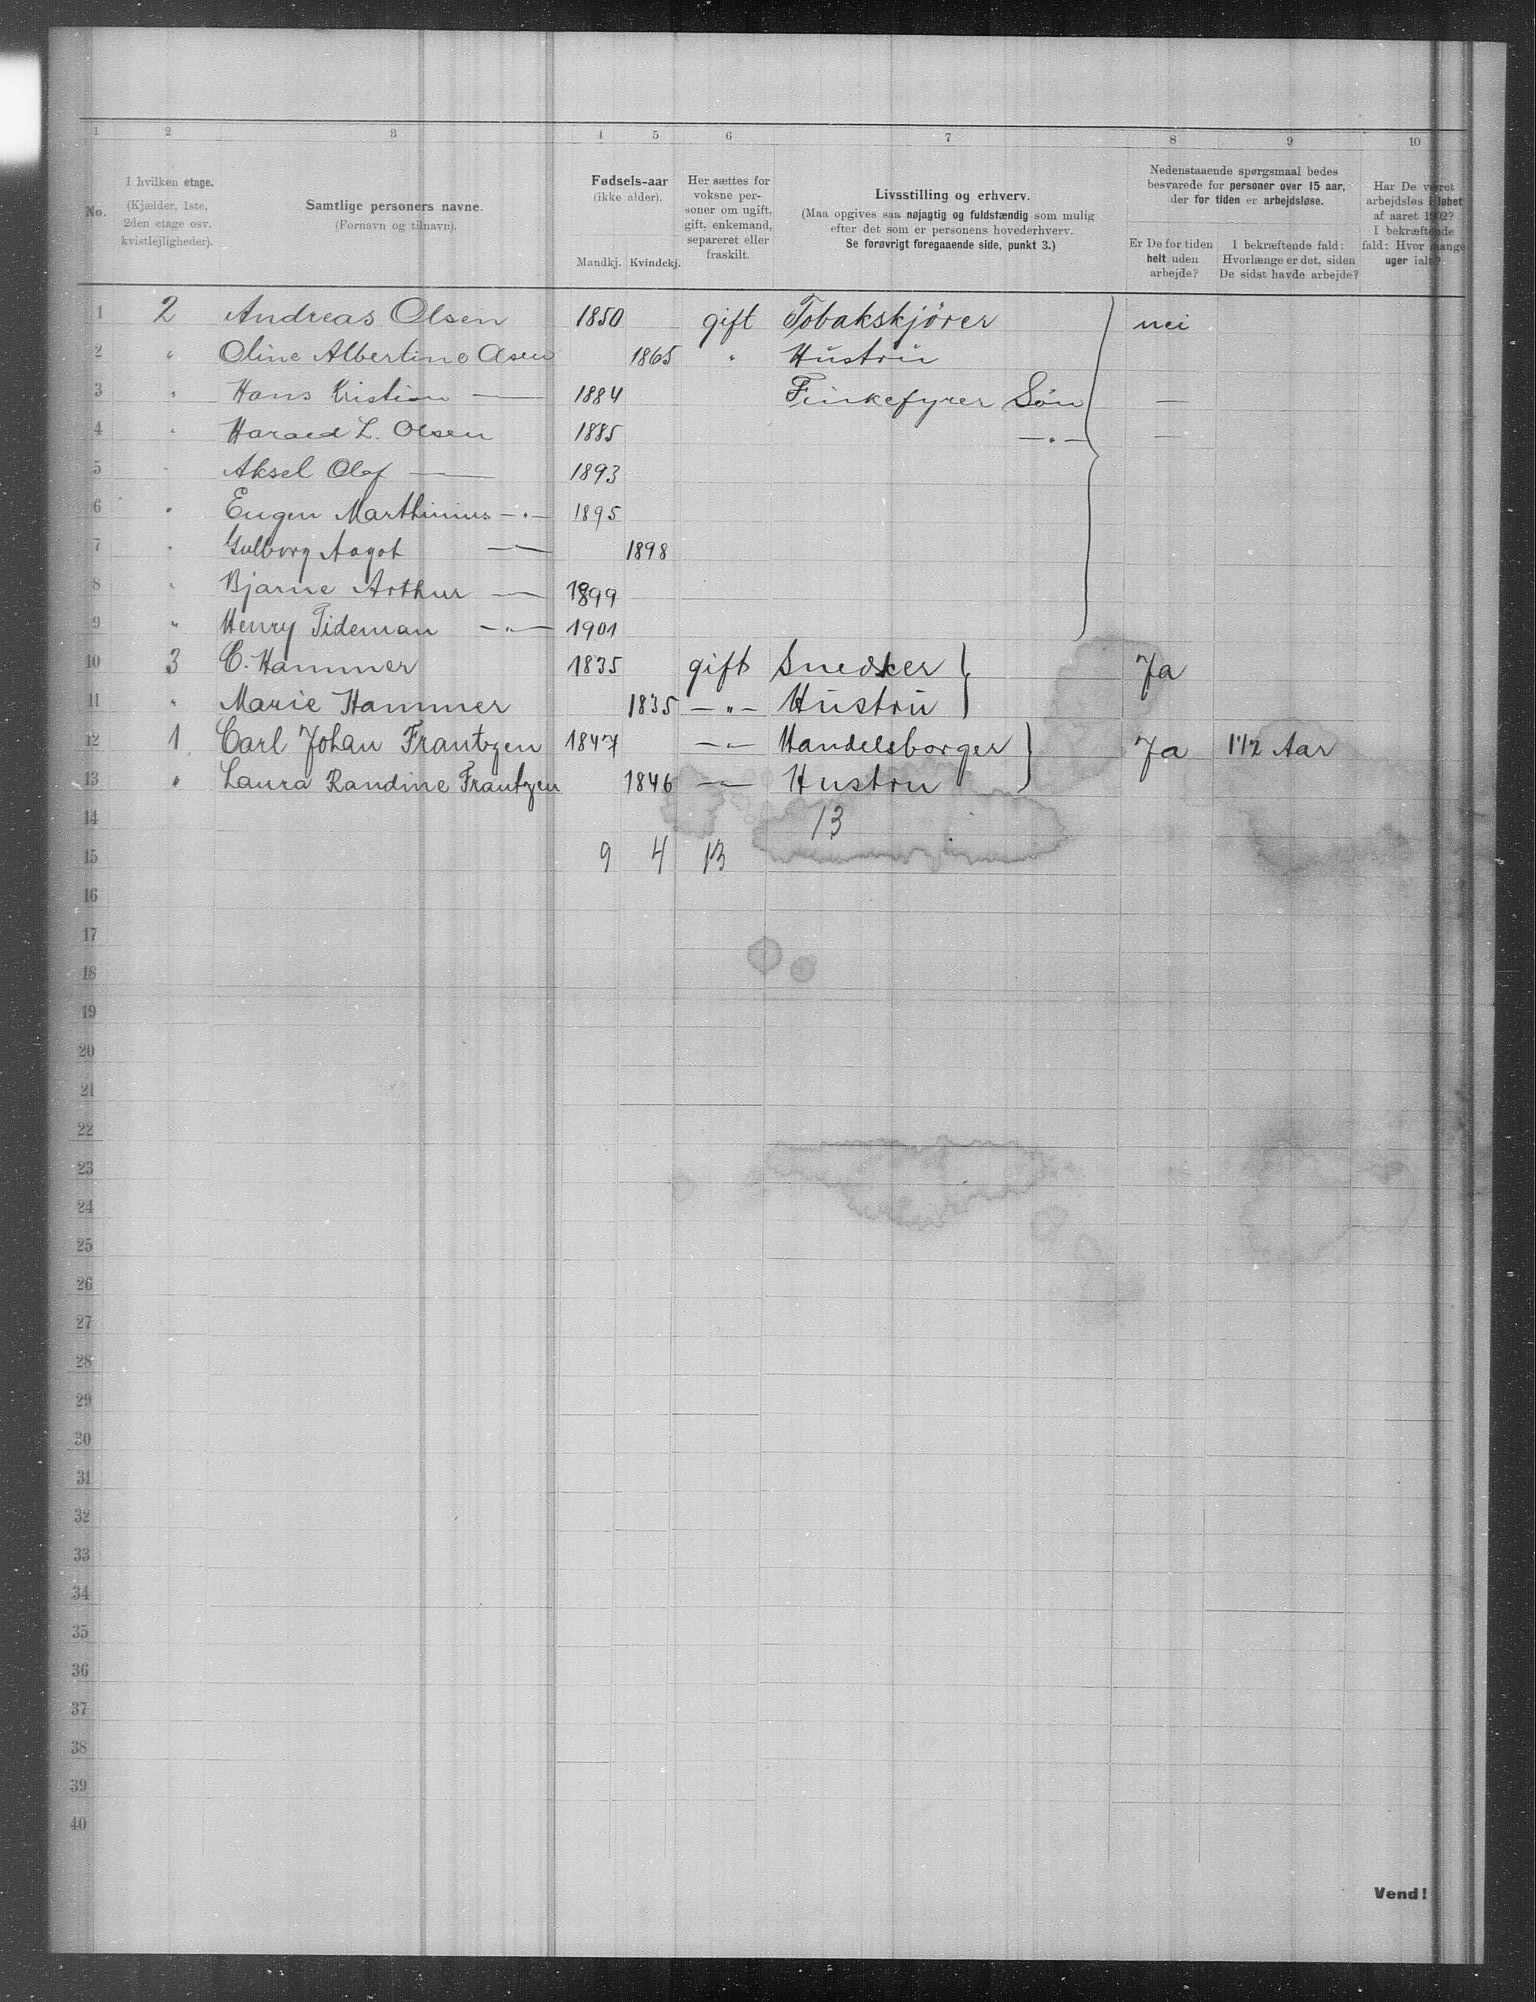 1 2 3 4 5 6 7 8 9 10
No.
I hvilken etage.
(Kjælder, 1ste,
2den etage osv.
kvistlejligheder).
Samtlige personers navne.
(Fornavn og tilnavn).
Fødsels-aar
(ikke alder).
Mandkj. Kvindekj.
Her sættes for
voksne per-
soner om ugift,
gift, enkemand,
separeret eller
fraskilt.
Livsstilling og erhverv.
(Maa opgives saa nøjagtig og fuldstændig som mulig
efter det som er personens hovederhverv.
Se forøvrigt foregaaende side, punkt 3.)
Nedenstaaende spørgsmaal bedes
besvarede for personer over 15 aar,
der for tiden er arbejdsløse.
Er De for tiden
helt uden
arbejde?
I bekræftende fald:
Hvorlænge er det, siden
De sidst havde arbejde?
Har De været
arbejdsløs i løbet
af aaret 1902?
I bekræftende
fald: Hvor mange
uger ialt?
1 2 Andreas Olsen 1850 gift Tobakskjører nei
2 " Oline Albertine Olsen 1865 " Hustru
3 " Hans Kristian — 1884 Finkefyrer Søn —
4 " Harald L. Olsen 1885 — " — —
5 " Aksel Olaf — 1893
6 " Eugen Marthinius — " — 1895
7 " Gulborg Aagot — " — 1898
8 " Bjarne Arthur — " — 1899
9 " Henry Tideman — " — 1901
10 3 C. Hammer 1835 gift Snedker Ja
11 " Marie Hammer 1835 — " — Hustru
12 1 Carl Johan Frantzen 1847 — " — Handelsborger Ja 1 1/2 Aar
13 " Laura Randine Frantzen 1846 — " — Hustru
14 13
15 9 4 13
16
17
18
19
20
21
22
23
24
25
26
27
28
29
30
31
32
33
34
35
36
37
38
39
40
Vend!